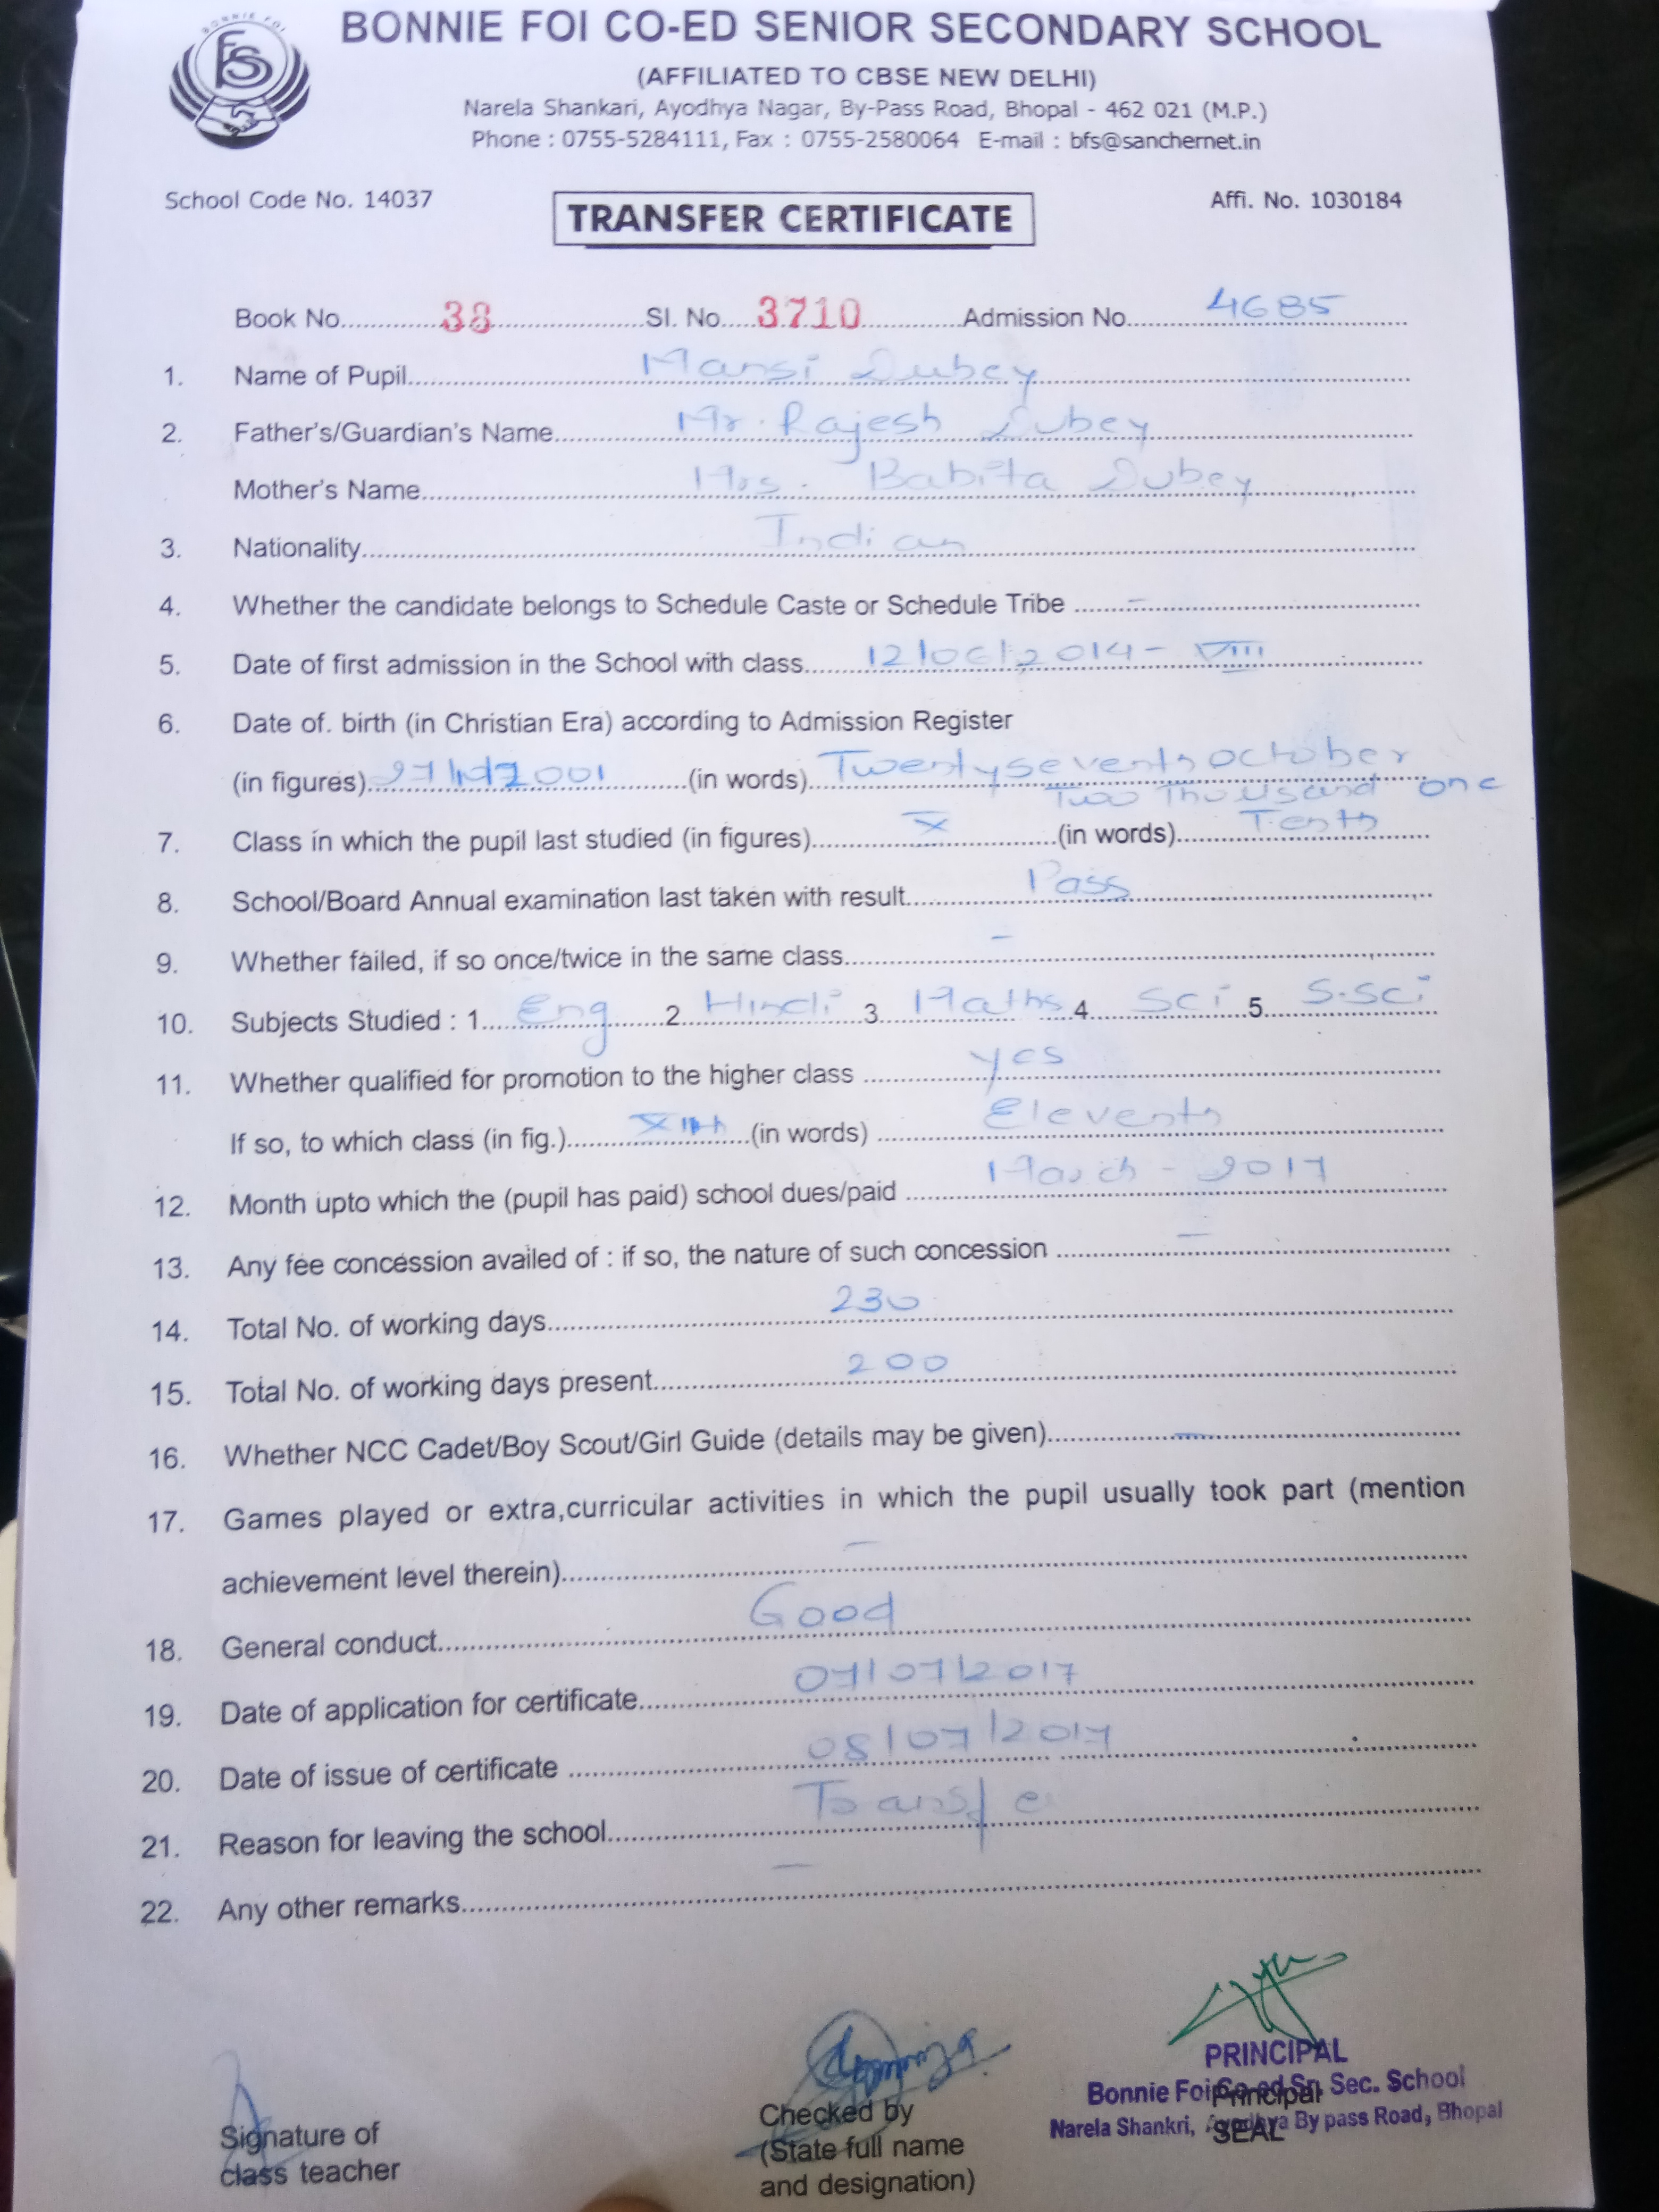 BONNIE FOI
BFS
BONNIE FOI CO-ED SENIOR SECONDARY SCHOOL
(AFFILIATED TO CBSE NEW DELHI)
Narela Shankari, Ayodhya Nagar, By-Pass Road, Bhopal - 462 021 (M.P.)
Phone : 0755-5284111, Fax : 0755-2580064 E-mail : bfs@sanchernet.in
School Code No. 14037 TRANSFER CERTIFICATE Affi. No. 1030184
Book No. 38 Sl. No. 3710 Admission No. 4685
1. Name of Pupil Mansi Dubey
2. Father's/Guardian's Name Mr. Rajesh Dubey
Mother's Name Mrs. Babita Dubey
3. Nationality Indian
4. Whether the candidate belongs to Schedule Caste or Schedule Tribe -
5. Date of first admission in the School with class 12/06/2014 - VIII
6. Date of. birth (in Christian Era) according to Admission Register
(in figures) 27/10/2001 (in words) Twenty seventh october
Two Thousand one
7. Class in which the pupil last studied (in figures) X (in words) Tenth
8. School/Board Annual examination last taken with result Pass
9. Whether failed, if so once/twice in the same class -
10. Subjects Studied : 1. Eng 2. Hindi 3. Maths 4. Sci 5. S.Sci
11. Whether qualified for promotion to the higher class yes
If so, to which class (in fig.) XIth (in words) Eleventh
12. Month upto which the (pupil has paid) school dues/paid March - 2017
13. Any fee concession availed of : if so, the nature of such concession -
14. Total No. of working days 230
15. Total No. of working days present 200
16. Whether NCC Cadet/Boy Scout/Girl Guide (details may be given) -
17. Games played or extra,curricular activities in which the pupil usually took part (mention
achievement level therein) -
18. General conduct Good
19. Date of application for certificate 07/07/2017
20. Date of issue of certificate 08/07/2017
21. Reason for leaving the school Transfe
22. Any other remarks -
PRINCIPAL
Bonnie Foi Co-ed Sr. Sec. School
Narela Shankri, Ayodhya By pass Road, Bhopal
Principal
SEAL
Signature of
class teacher
Checked by
(State full name
and designation)